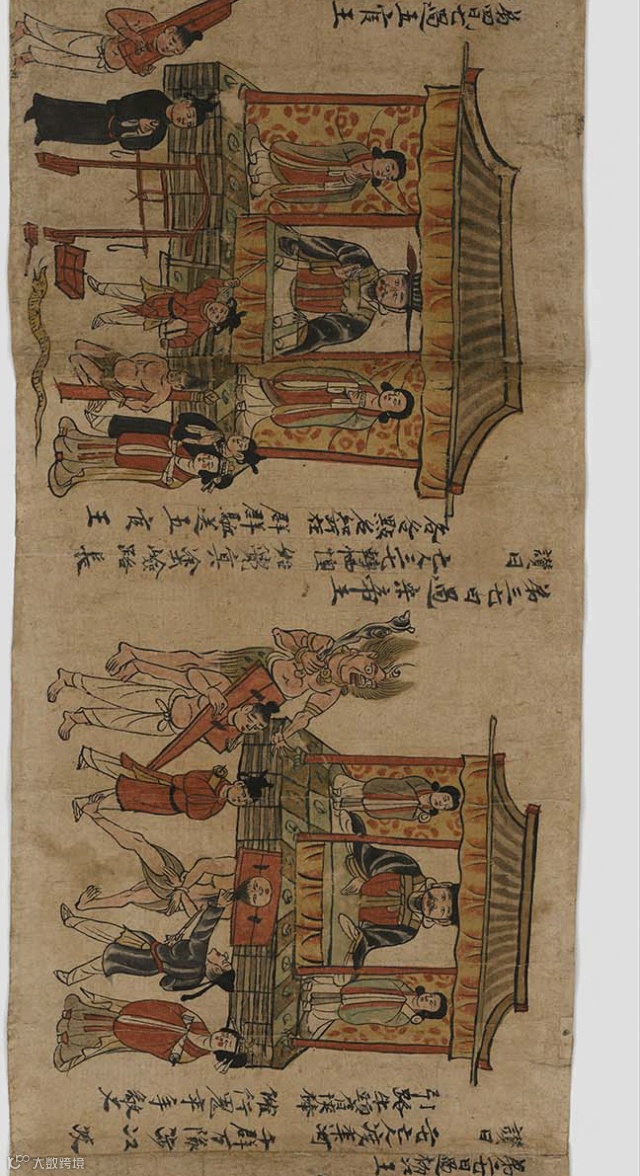 第二七日過初江王
讚曰
二七亡人渡奈河 千群萬隊涉江波
引路牛頭肩挾棒 催行鬼卒手擎叉
第三七日過宋帝王
讚曰
亡人三七轉恓惶 始覺冥途嶮路長
各各點名知所在 群群驅送五官王
第四七日過五官王
大数跨境